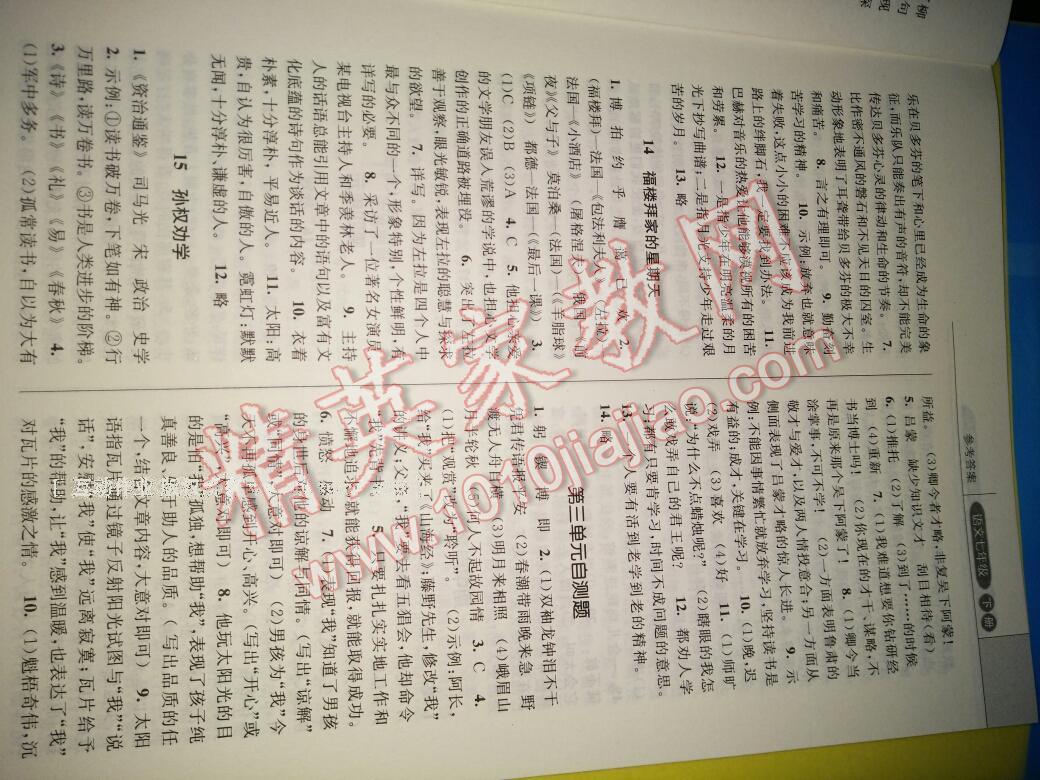 参考答案
语文七年级 下册
乐在贝多芬的笔下和心里已经成为生命的象
征,而乐队只能奏出有声的音符,却不能完美
传达贝多芬心灵的律动和生命的节奏。 7.
比作密不通风的磐石和不见天日的囚室。生
动形象地表明了耳聋带给贝多芬的极大不幸
和痛苦。 8. 言之有理即可。 9. 勤奋刻
苦学习的精神。 10. 示例:放弃也就意味
着失败,这点小小的困难不应该成为我前进
路上的绊脚石,我一定要找到办法。 11.
巴赫对音乐的热爱让他能够漠视所有的困苦
和劳累。 12. 一是指少年在明亮温柔的月
光下抄写曲谱;二是指月光支持少年走过艰
苦的岁月。 13. 略
14 福楼拜家的星期天
1. 博 拍 约 乎 膺 蔼 2.
(福楼拜) 法国—《包法利夫人》 (左拉)
法国—《小酒店》 (屠格涅夫) 俄国—《前
夜》《父与子》 莫泊桑—(法国)—《羊脂球》
《项链》) 都德—法国—(《最后一课》) 3.
(1)C (2)B (3)A 4. C 5. 他担心亲爱
的文学朋友误入荒谬的学说中,也担心文学
创作的正确道路被埋没。 6. 突出了左拉
善于观察,眼光敏锐,表现左拉的聪慧与探求
的欲望。 7. 详写。因为左拉是四个人中
最与众不同的一个,形象特别,个性鲜明,有
详写的必要。 8. 采访了一位著名女演员、
某电视台主持人和季羡林老人。 9. 主持
人的话语总能引用文章中的语句以及富有文
化底蕴的诗句作为谈话的内容。 10. 衣着
朴素,十分淳朴,平易近人。 11. 太阳:高
贵,自认为很厉害,自傲的人。霓虹灯:默默
无闻,十分淳朴、谦虚的人。 12. 略
15 孙权劝学
1.《资治通鉴》 司马光 宋 政治 史学
2. 示例:①读书破万卷,下笔如有神。②行
万里路,读万卷书。③书是人类进步的阶梯。
3.《诗》《书》《礼》《易》《春秋》 4.
(1)军中多务。 (2)孤常读书,自以为大有
所益。 (3)卿今者才略,非复吴下阿蒙!
5. 吕蒙 缺少知识文才 刮目相待(看)
6. (1)推托 (2)了解 (3)到了……的时候
到 (4)重新 7. (1)我难道想要你钻研经
书当博士吗! (2)你现在的才干、谋略,不
再是原来那个吴下阿蒙了! 8. (1)卿今当
涂掌事,不可不学! (2)一方面表明鲁肃的
敬才与爱才,以及两人情投意合;另一方面从
侧面表现了吕蒙才略的惊人长进。 9. 示
例:不能因事情繁忙就放弃学习,坚持读书是
有益的;成才,关键在学习。 10. (1)晚,迟
(2)戏弄 (3)喜欢 (4)歼 11. (1)师旷
说:“为什么不点蜡烛呢?” (2)瞎眼的我怎
么敢戏弄自己的君王呢? 12. 都劝人学
习;都有只要肯学习,时间不成问题的意思。
13. 个人要有活到老学到老的精神。
14. 略
第三单元自测题
1. 躬 锲 傅 即 2. (1)双袖龙钟泪不干
凭君传语报平安 (2)春潮带雨晚来急 野
渡无人舟自横 (3)明月来相照 (4)峨眉山
月半轮秋 (5)何人不起故园情 3. C 4.
(1)把“观赏”改为“聆听”。 (2)示例:阿长,
给“我”买来了《山海经》;藤野先生,修改“我”
的讲义;父亲,“我”要去看五猖会,他却命令
“我”先背书。 5. 只要扎扎实实地工作和
不懈地追求,就能获得回报,就能取得成功。
6. 愤怒 感动 7. (1)表现“我”知道了男孩
的身世后对他的谅解与同情。(写出“谅解”
或“同情”,大意对即可) (2)男孩为“我”今
天不再孤独感到开心、高兴。(写出“开心”或
“高兴”,大意对即可) 8. 他玩太阳光的目
的是怕“我”孤独,想帮助“我”,表现了孩子纯
真善良、乐于助人的品质。(写出品质的任
一个,结合文章内容,大意对即可) 9. 太阳
语指瓦片通过镜子反射阳光试图与“我”“说
话”,安慰“我”,使“我”远离寂寞;瓦片给予
“我”的帮助,让“我”感到温暖,也表达了“我”
对瓦片的感激之情。 10. (1)魁梧奇伟,沉
精英家教网
www.1010jiajiao.com